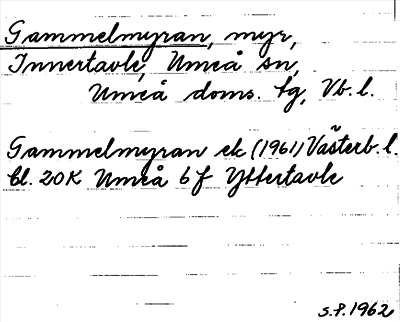 Gammelmyran, myr,
Innertavle, Umeå sn,
Umeå doms. tg, Vb. l.
Gammelmyran ek (1961) Västerb. l.
bl. 20K Umeå 6f Yttertavle
S.P. 1962